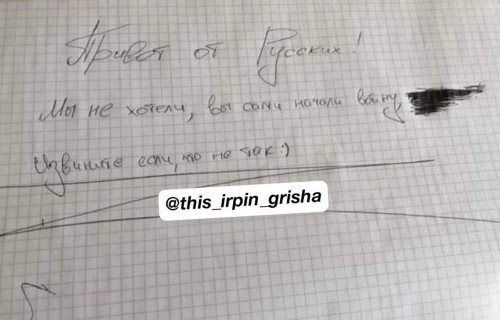 Привет от Русских!
Мы не хотели, вы сами начали войну,
Извините если, что не так:)
@this_irpin_grisha